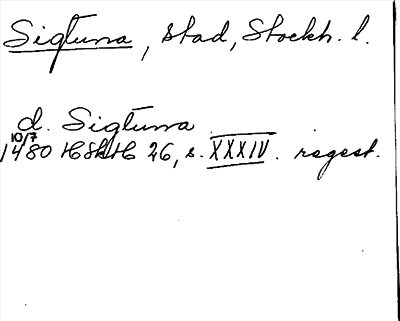 Sigtuna, stad, Stockh. l.
d. Sigtuna
10/7
1480 HSkH 26, s. XXXIV. regest.